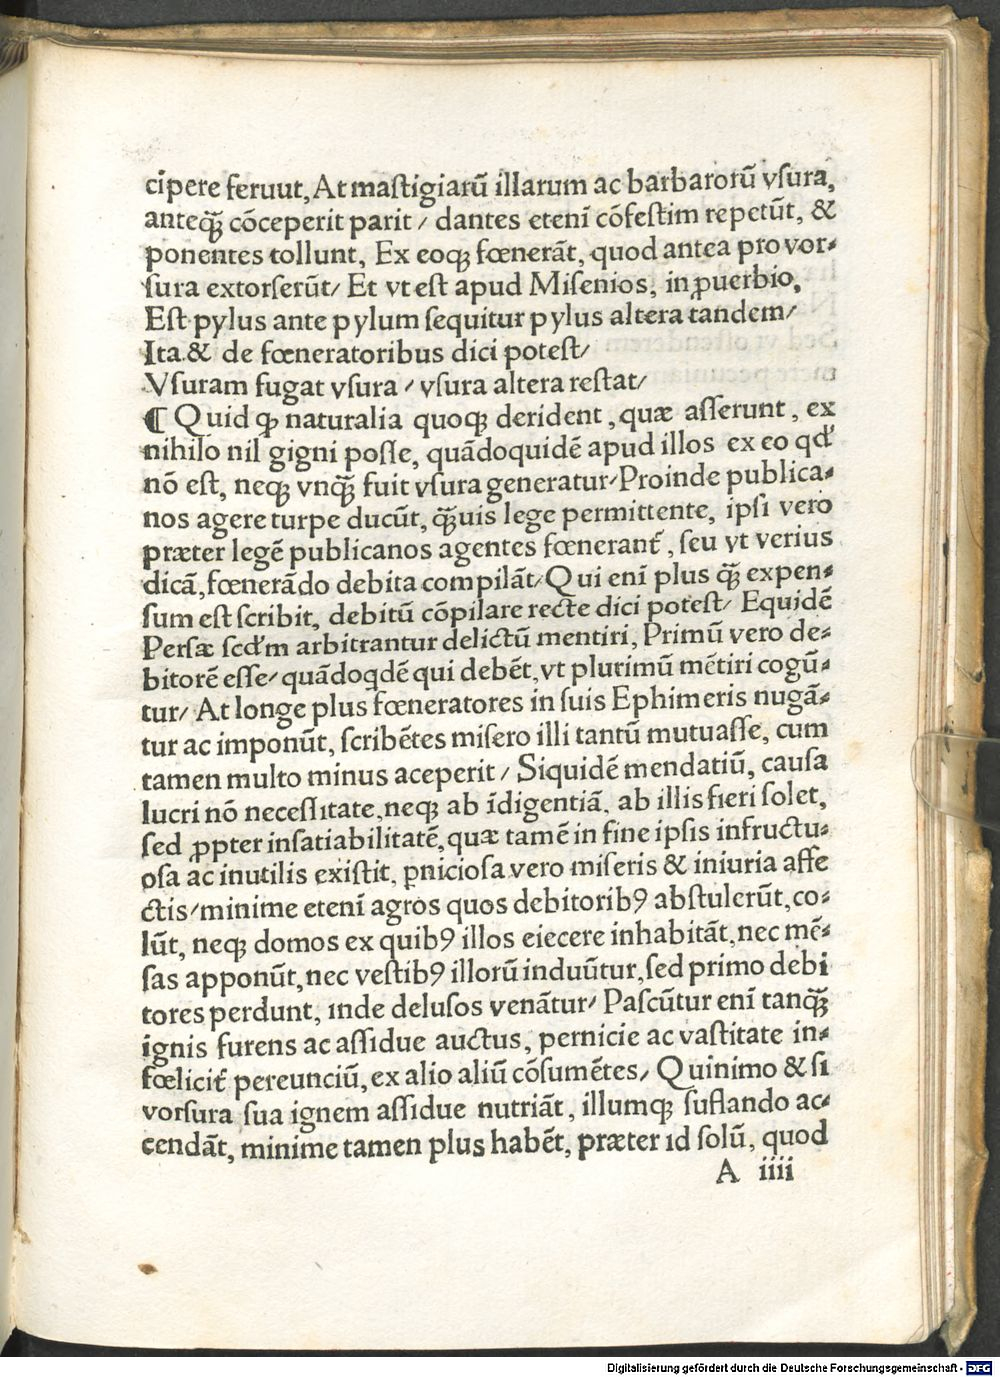 cīpere feruut, At mastigiarū illarum ac barbarorū vsura,
anteq̄ȝ cōceperit parit / dantes etenī cōfestim repetūt, &
ponentes tollunt, Ex eoqȝ fœnerāt, quod antea pro vor⸗
sura extorserūt/ Et vt est apud Misenios, in ꝓuerbio,
Est pylus ante pylum sequitur pylus altera tandem/
Ita.& de fœneratoribus dici potest/
Vsuram fugat vsura / vsura altera restat/
¶ Quid ꝙ naturalia quoqȝ derident, quæ asserunt, ex
nihilo nil gigni posse, quādoquidē apud illos ex eo qd'
nō est, neqȝ vnq̄ȝ fuit vsura generatur/Proinde publica⸗
nos agere turpe ducūt, q̄ȝuis lege permittente, ipsi vero
præter legē publicanos agentes fœnerant᷑, seu vt verius
dicā, fœnerādo debita compilāt/Qui enī plus q̄ȝ expen⸗
sum est scribit, debitū cōpilare recte dici potest/ Equidē
Persæ scd'm arbitrantur delictū mentiri, Primū vero de⸗
bitorē esse/ quādoqdē qui debēt, vt plurimū mētiri cogū⸗
tur/ At longe plus fœneratores in suis Ephimeris nugā⸗
tur ac imponūt, scribētes misero illi tantū mutuasse, cum
tamen multo minus aceperit / Siquidē mendatiū, causa
lucri nō necessitate, neqȝ ab īdigentiā, ab illis fieri solet,
sed ꝓpter insatiabilitatē, quæ tamē in fine ipsis infructu⸗
osa ac inutilis existit, ꝑniciosa vero miseris & iniuria affe
ctis/minime etenī agros quos debitoribꝰ abstulerūt, co⸗
lūt, neqȝ domos ex quibꝰ illos eiecere inhabitāt, nec mē⸗
sas apponūt, nec vestibꝰ illorū induūtur, sed primo debi
tores perdunt, inde delusos venātur/ Pascūtur enī tanq̄ȝ
ignis furens ac assidue auctus, pernicie ac vastitate in⸗
fœlicit᷑ pereunciū, ex alio aliū cōsumētes/ Quinimo & si
vorsura sua ignem assidue nutriāt, illumqȝ suflando ac⸗
cendāt, minime tamen plus habēt, præter id solū, quod
A iiii
Digitalisierung gefördert durch die Deutsche Forschungsgemeinschaft - DFG